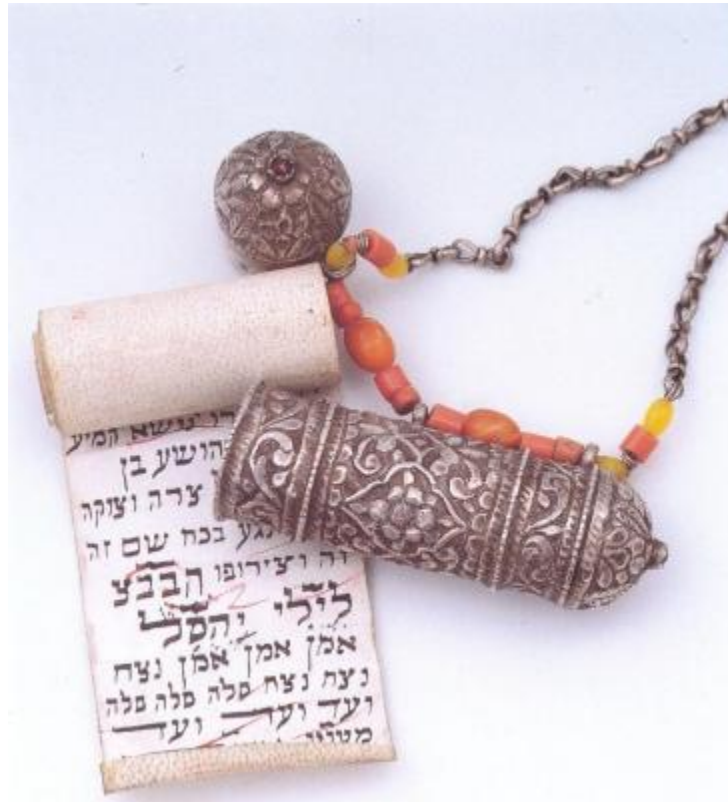 נושא הקמיע
הושע בן
צרה וצוקה
נגע בכח שם זה
זה וצירופו הבבצ
לילי יהסל
אמן אמן אמן נצח
נצח נצח סלה סלה סלה
ועד ועד ועד